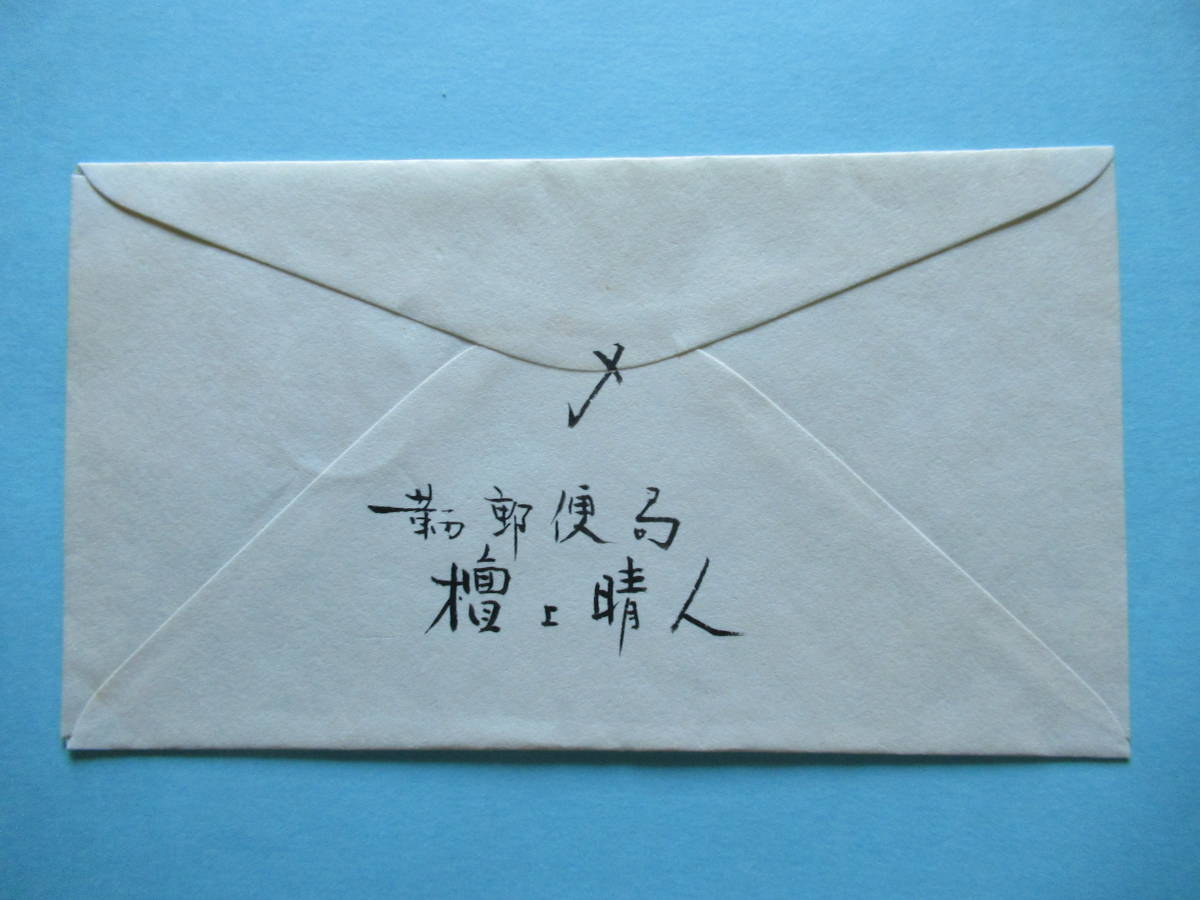 〆
鞆郵便局
檀上晴人